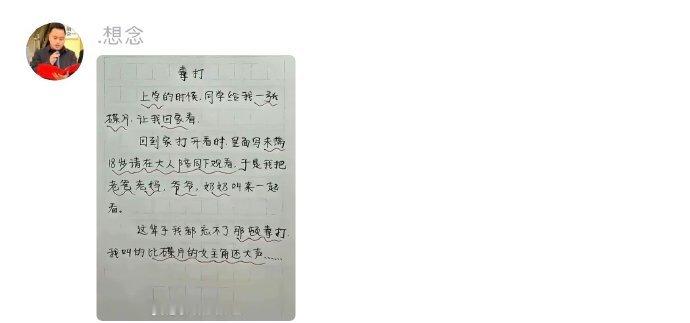 .想念
毒打
上学的时候,同学给我一张
碟片,让我回家看.
回到家打开看时,里面写未满
18岁请在大人陪同下观看,于是我把
老爸老妈,爷爷,奶奶叫来一起
看。
这辈子我都忘不了那顿毒打.
我叫的比碟片的女主角还大声……